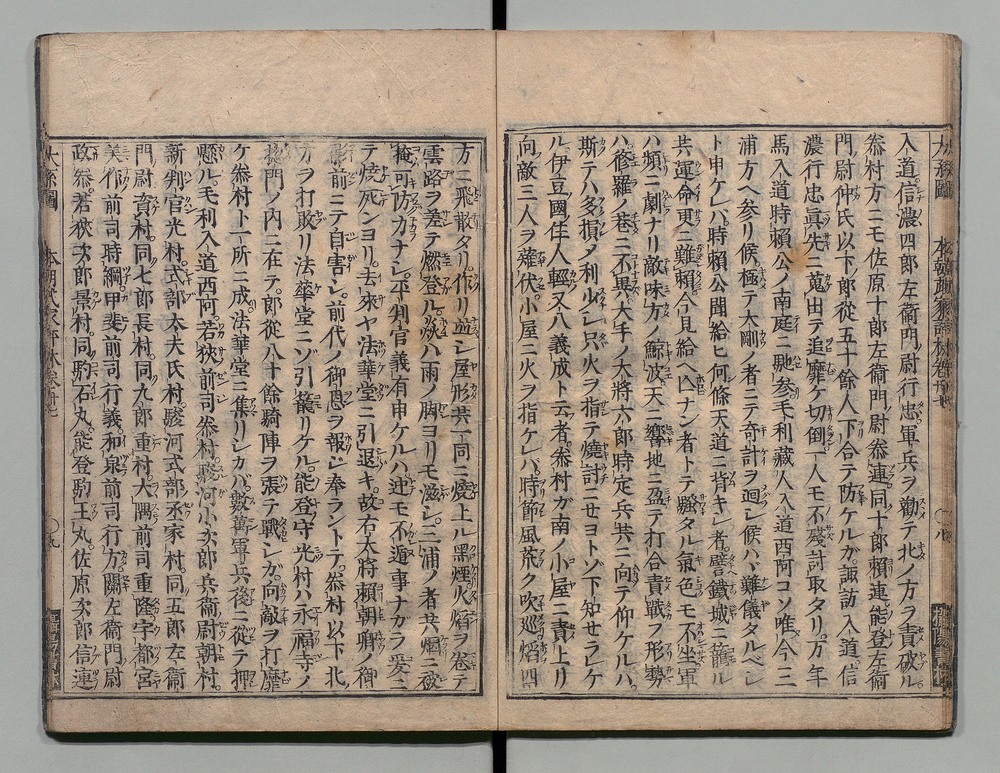 入道信濃四郎左衞門尉行忠軍兵ヲ勸テ北ノ方ヲ責破ル
叅村方ニモ佐原十郎左衞門尉叅連同十郎頼連能登左衞
門尉仲氏以下郎從五十餘人下合テ防ケルガ諏訪入道信
濃行忠眞先ニ蒐出テ追靡ケ切倒一人モ不殘討取タリ万年
馬入道時頼公ノ南庭ニ馳参毛利藏人入道西阿コソ唯今三
浦方ヘ参リ候極テ大剛ノ者ニテ奇計ヲ廻シ候ハバ難儀タルベシ
ト申ケレバ時頼公聞給ヒ何條天道ニ背キシ者譬鐵城ニ籠ル
共運命更ニ難頼今見給ヘ亡ナン者トテ騷タル氣色モ不坐軍
ハ頻ニ劇ナリ敵味方ノ鯨波天ニ響地ニ盈テ打合責戰フ形勢
ハ修羅ノ巷ニ不異大手ノ大將六郎時定兵共ニ向テ仰ケルハ
斯テハ多損メ利少シ只火ヲ指テ燒討ニセヨトゾ下知セラレケ
ル伊豆國住人輕又八義成ト云者叅村ガ南ノ小屋ニ責上リ
向敵三人ヲ薙伏小屋ニ火ヲ指ケレバ時節風荒ク吹巡熖四
方ニ飛散タリ作リ並シ屋形共一同ニ燒上ル黑煙火熖ヲ卷テ
雲路ヲ差テ燃登ル焱ハ雨ノ脚ヨリモ滋シ三浦ノ者共烟ニ被
掩可防力ナシ平判官義有申ケルハ迚モ不遁事ナガラ爰ニ
テ燒死ンヨリ去來ヤ法華堂ニ引退キ故右大將頼朝卿ノ御
影前ニテ自害シ前代ノ御恩ヲ報ジ奉ラントテ叅村以下北ノ
方ヲ打破リ法華堂ニゾ引籠リケル能登守光村ハ永福寺ノ
惣門ノ内ニ在テ郎從八十餘騎陣ヲ張テ戰シガ向敵ヲ打靡
ケ叅村ト一所ニ成法華堂ニ集リシカバ數萬軍兵後ニ從テ押
懸ル毛利入道西阿若狹前司叅村駿河小次郎兵衞尉朝村
新判官光村式部太夫氏村駿河式部丞家村同五郎左衞
門尉資村同七郎長村同九郎重村大隅前司重隆宇都宮
美作前司時綱甲斐前司行義和泉前司行方關左衞門尉
政叅若狹次郎景村同駒石丸能登駒王丸佐原次郎信連